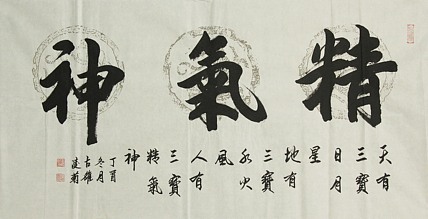 精氣神
天有
三寶
日月
星
地有
三寶
水火
風
人有
三寶
精氣
神
丁酉
冬月
古雒